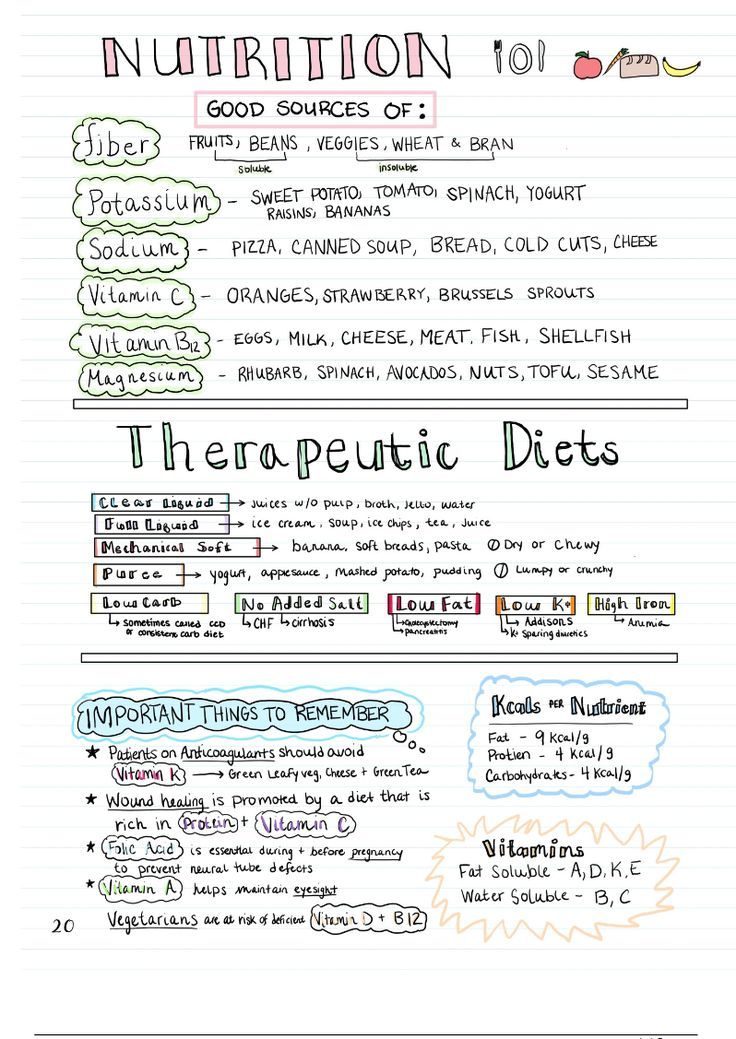 NUTRITION
GOOD SOURCES OF:
fiber FRUITS, BEANS, VEGGIES, WHEAT & BRAN
soluble insoluble
Potassium - SWEET POTATO, TOMATO, SPINACH, YOGURT
RAISINS, BANANAS
Sodium - PIZZA, CANNED SOUP, BREAD, COLD CUTS, CHEESE
Vitamin C - ORANGES, STRAWBERRY, BRUSSELS SPROUTS
Vitamin B12 - EGGS, MILK, CHEESE, MEAT, FISH, SHELLFISH
Magnesium - RHUBARB, SPINACH, AVOCADOS, NUTS, TOFU, SESAME
Therapeutic Diets
Clear Liquid → Juices w/o pulp, broth, Jello, water
Full Liquid → ice cream, soup, ice chips, tea, Juice
Mechanical Soft → banana, soft breads, pasta Dry or Chewy
Puree → yogurt, applesauce, mashed potato, pudding Lumpy or crunchy
Low Carb No Added Salt Low Fat Low K+ High Iron
↳ Sometimes called CCD ↳ CHF ↳ cirrhosis ↳ Cholecystectomy ↳ Addisons ↳ Anemia
or consistent carb diet ↳ Pancreatitis ↳ K+ Sparing diuretics
IMPORTANT THINGS TO REMEMBER
★ Patients on Anticoagulants should avoid
Vitamin K → Green Leafy veg, Cheese + Green Tea
★ Wound healing is promoted by a diet that is
rich in Protein + Vitamin C
★ Folic Acid is essential during + before pregnancy
to prevent neural tube defects
★ Vitamin A helps maintain eyesight
Vegetarians are at risk of deficient Vitamin D + B12
20
Kcals PER Nutrient
Fat - 9 Kcal/g
Protien - 4 Kcal/g
Carbohydrates - 4 Kcal/g
Vitamins
Fat Soluble - A, D, K, E
Water Soluble - B, C